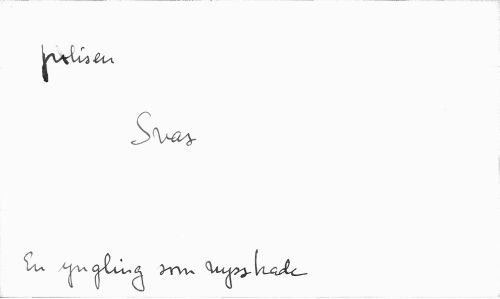 polisen
Svar
En yngling som nyss hade